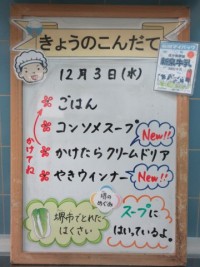 きょうのこんだて
12月3日(水)
ごはん
コンソメスープ
New!!
かけたらクリームドリア
New!!
やきウィンナー
かけてね
堺市でとれた
はくさい
スープに
はいっているよ。